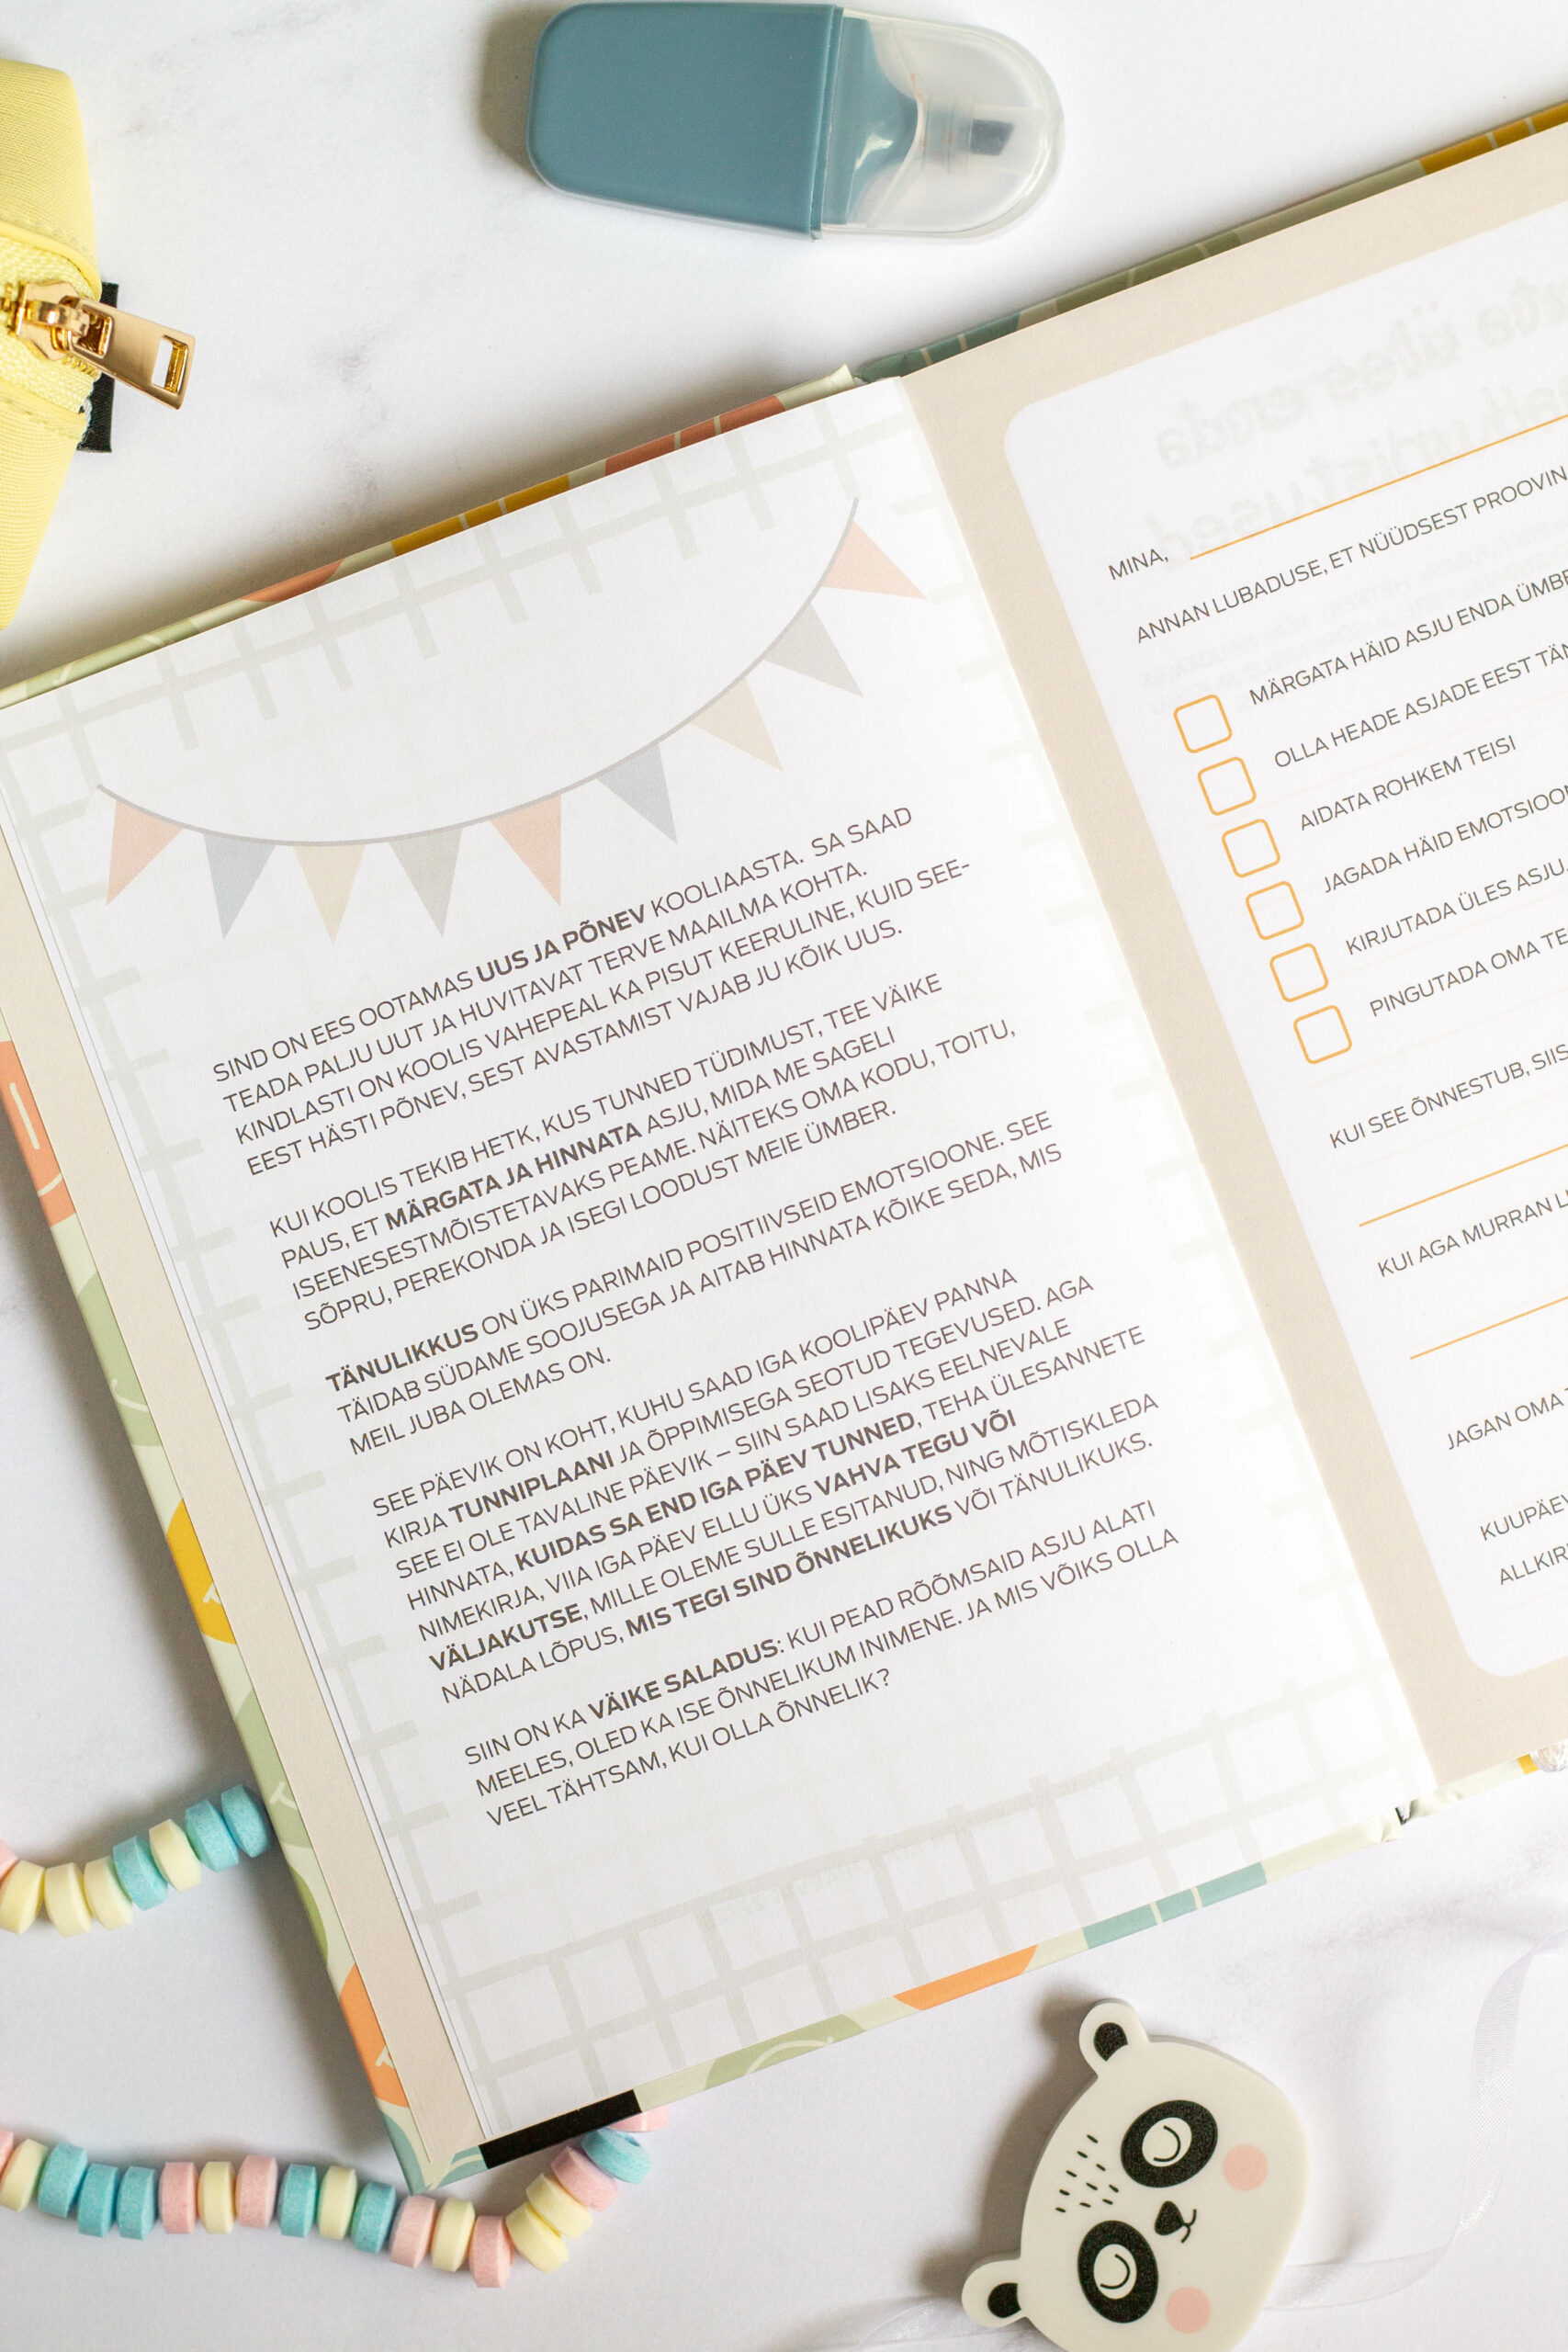 SIND ON EES OOTAMAS UUS JA PÕNEV KOOLIAASTA. SA SAAD
TEADA PALJU UUT JA HUVITAVAT TERVE MAAILMA KOHTA.
KINDLASTI ON KOOLIS VAHEPEAL KA PISUT KEERULINE, KUID SEE-
EEST HÄSTI PÕNEV, SEST AVASTAMIST VAJAB JU KÕIK UUS.
KUI KOOLIS TEKIB HETK, KUS TUNNED TÜDIMUST, TEE VÄIKE
PAUS, ET MÄRGATA JA HINNATA ASJU, MIDA ME SAGELI
ISEENESESTMÕISTETAVAKS PEAME. NÄITEKS OMA KODU, TOITU,
SÕPRU, PEREKONDA JA ISEGI LOODUST MEIE ÜMBER.
TÄNULIKKUS ON ÜKS PARIMAID POSITIIVSEID EMOTSIOONE. SEE
TÄIDAB SÜDAME SOOJUSEGA JA AITAB HINNATA KÕIKE SEDA, MIS
MEIL JUBA OLEMAS ON.
SEE PÄEVIK ON KOHT, KUHU SAAD IGA KOOLIPÄEV PANNA
KIRJA TUNNIPLAANI JA ÕPPIMISEGA SEOTUD TEGEVUSED. AGA
SEE EI OLE TAVALINE PÄEVIK – SIIN SAAD LISAKS EELNEVALE
HINNATA, KUIDAS SA END IGA PÄEV TUNNED, TEHA ÜLESANNETE
NIMEKIRJA, VIIA IGA PÄEV ELLU ÜKS VAHVA TEGU VÕI
VÄLJAKUTSE, MILLE OLEME SULLE ESITANUD, NING MÕTISKLEDA
NÄDALA LÕPUS, MIS TEGI SIND ÕNNELIKUKS VÕI TÄNULIKUKS.
SIIN ON KA VÄIKE SALADUS: KUI PEAD RÕÕMSAID ASJU ALATI
MEELES, OLED KA ISE ÕNNELIKUM INIMENE. JA MIS VÕIKS OLLA
VEEL TÄHTSAM, KUI OLLA ÕNNELIK?
MINA,
ANNAN LUBADUSE, ET NÜÜDSEST PROOVIN
MÄRGATA HÄID ASJU ENDA
OLLA HEADE ASJADE EEST
AIDATA ROHKEM TEISI
JAGADA HÄID
KIRJUTADA ÜLES ASJU,
PINGUTADA OMA
KUI SEE ÕNNESTUB, SIIS
KUI AGA MURRAN
JAGAN OMA